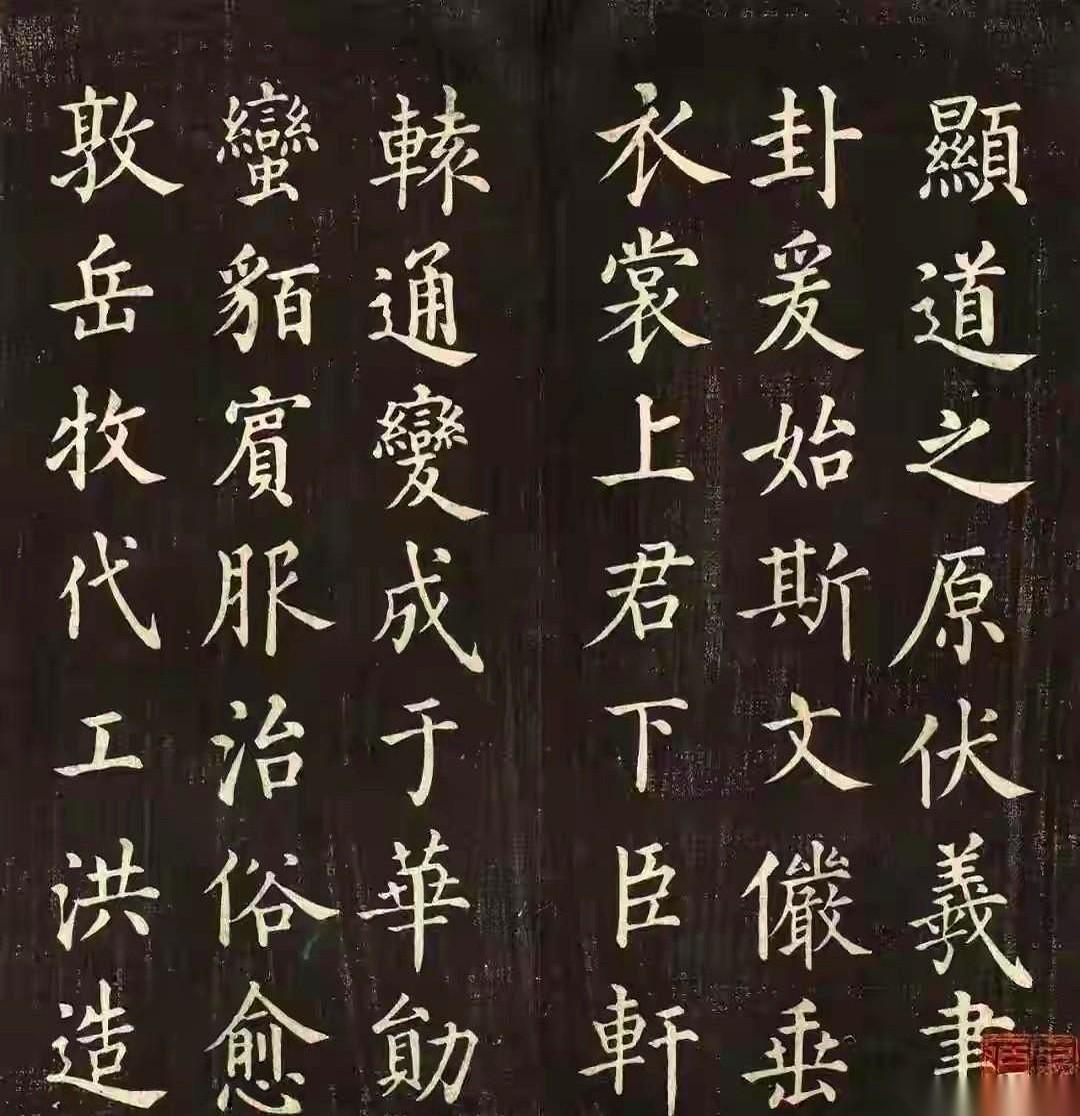 顯道之原伏羲
卦爰始斯文儼垂
衣裳上君下臣軒
轅通變成于華勛
蠻貊賓服治俗愈
敦岳牧代工洪造